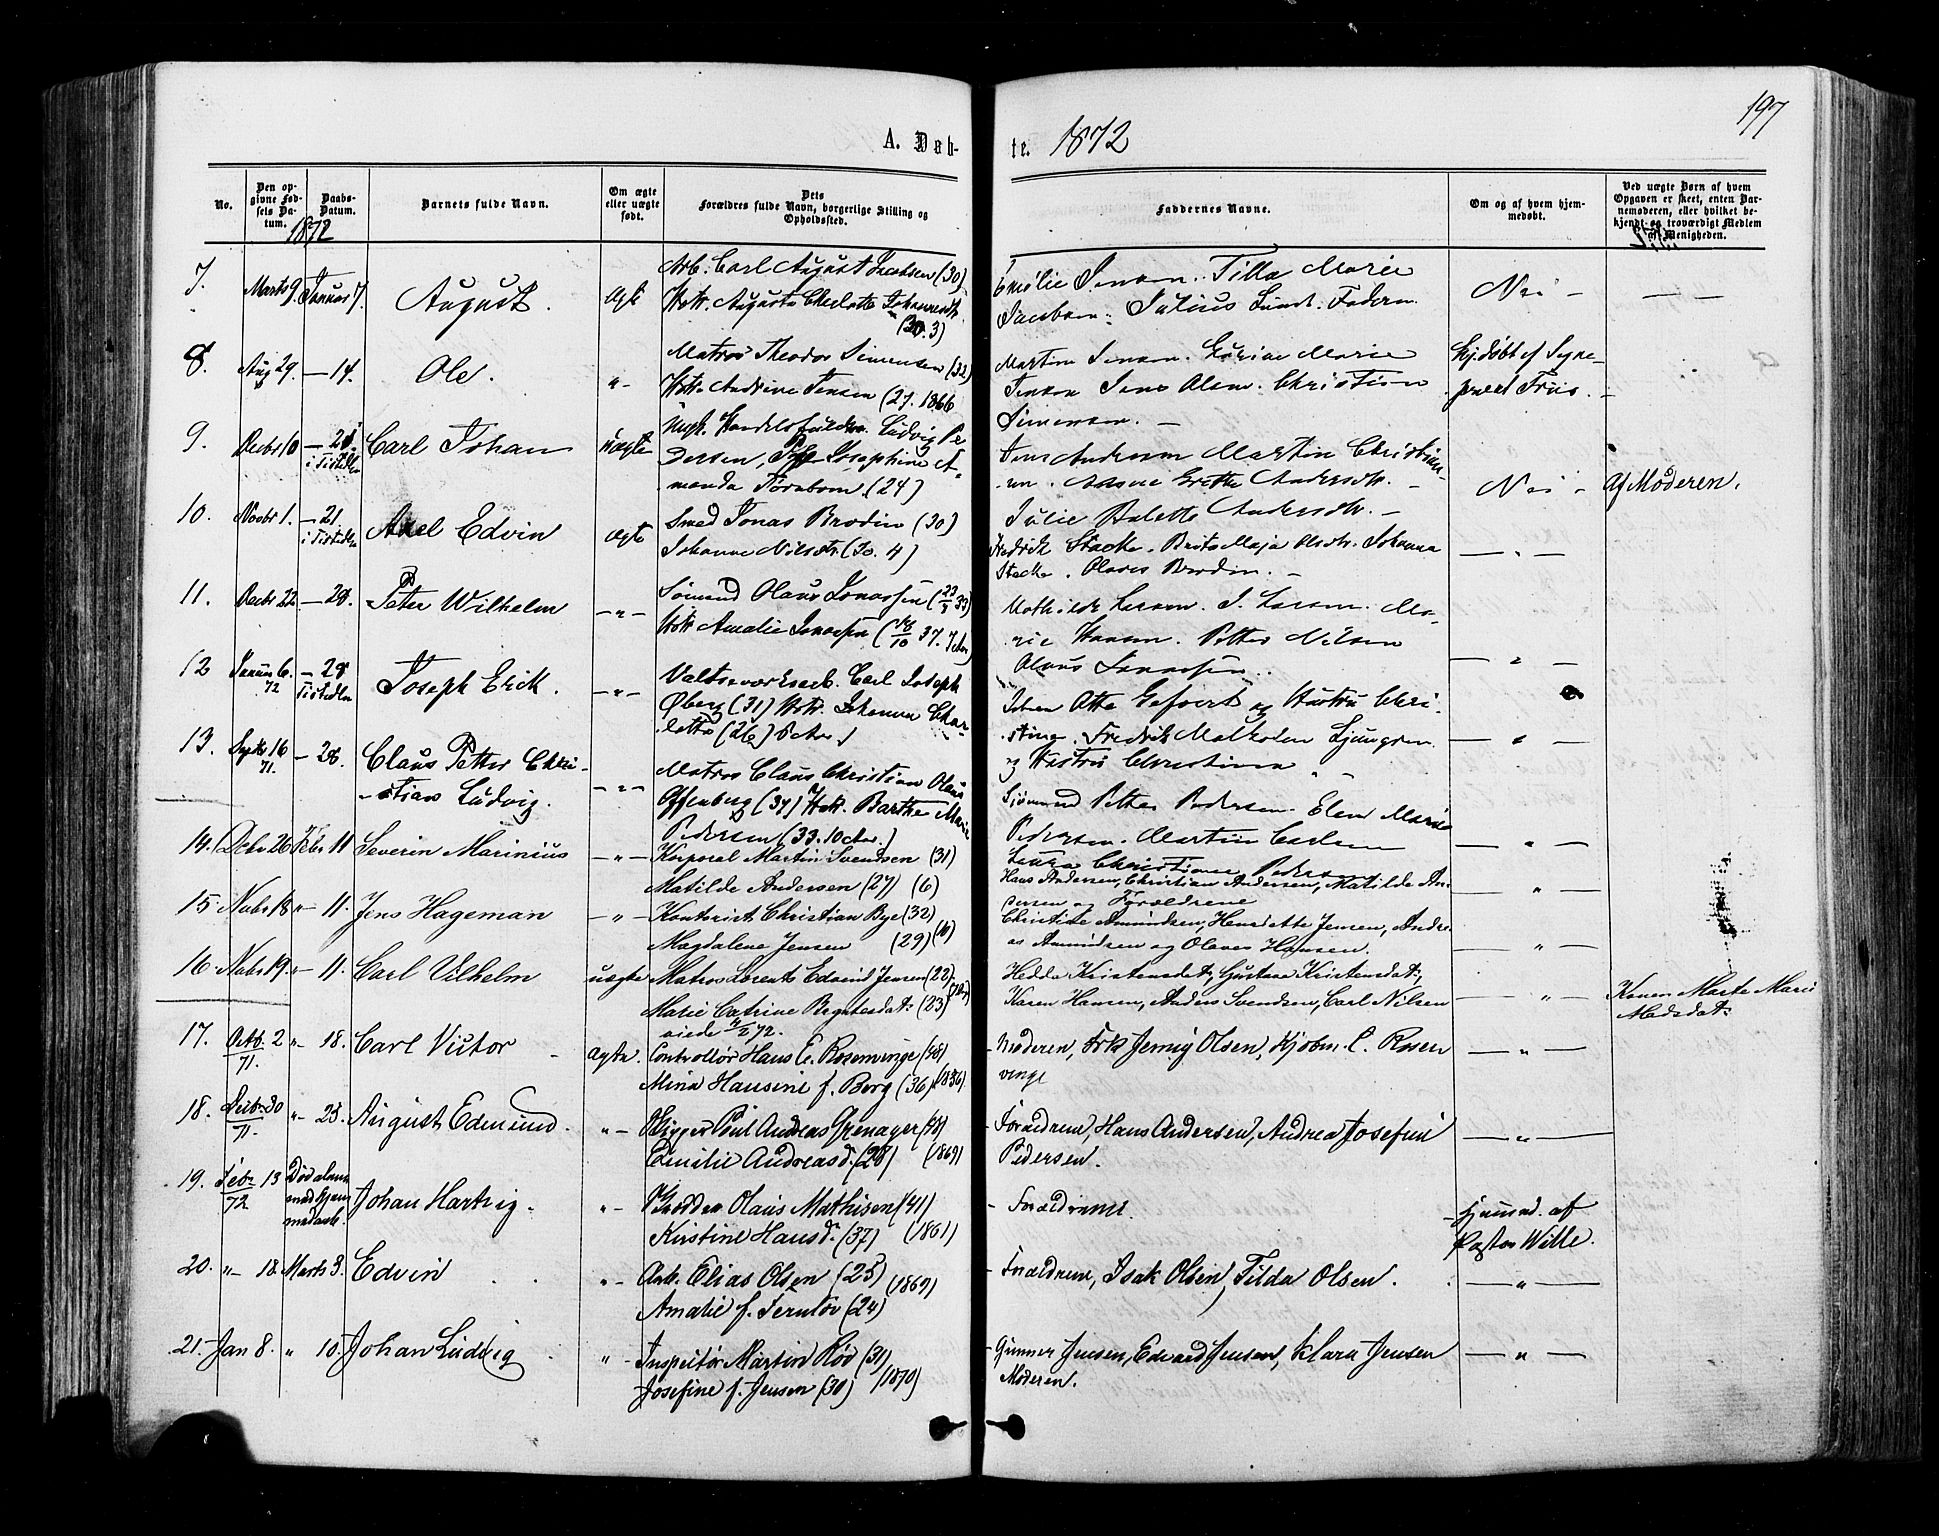 197
A. Døb-
te. 1872
No.
Den op-
givne Fød-
sels Da-
tum.
Daabs-
Datum.
Barnets fulde Navn.
Om ægte
eller uægte
født.
Dets
Forældres fulde Navn, borgerlige Stilling og
Opholdssted.
Faddernes Navne.
Om og af hvem hjem-
medøbt.
Ved uægte Børn af hvem
Opgaven er skeet, enten Bar-
nemoderen, eller hvilket be-
kjendt og troværdigt Medlem
af Menigheden.
1872
7. Marts 9. Januar 7. August. ægte
Arb. Carl August Jacobsen (30)
Hstr. Augusta Charlotte Johannesdtr.
Emilie Jensen. Tilla Marie
Jacobsen. Julius Lund. Faderen
Nei —
8. Aug 29. — 14. Ole. "-
Matros Theodor Simensen (32)
Hstr. Andrine Jensen (27. 1866
Martin Jensen. Marie
Jensen Jens Olsen. Christian
Simensen. —
Hjdøbt af
Friis. —
9. Decbr 10 — 28 i Tistedln Carl Johan uægte
Ludvig Pe-
dersen, Pige Josephine A-
manda Törnbom (24)
Jens Andersen Martin Christian-
sen. Grethe Andersdtr. —
Nei — Af Moderen.
10. Novbr 1. — 21 i Tistedln Axel Edvin ægte
Smed Jonas Brodin (30)
Johanne Nilsdtr. (30. 4)
Julie Bolette Andersdtr. —
Fredrik Stacke. Brita Maja Olsdtr. Johanna
Stacke. Olaves Brodin. —
— " —
11. Decbr 22 — 28. Peter Wilhelm — " —
Sømand Olaus Jonassen (22/3 33)
Hstr Amalie Jonassen (18/10 37.
Mathilde Larsen. J. Larsen. Ma-
rie Hansen. Petter Nilsen
Olaus Jonassen.
— " —
12 Januar 6. 72 — 28 Tistedln Joseph Erick. — " —
Valseværksarb. Carl Joseph
Øberg (31) Hstr. Johanna Char-
lotta (26)
Johan Otto Gefvert og Hustru Chri-
stina. Fredrik Malkolm Ljungren
og Hustru Christina
— " —
13. Septbr 16 71. — 28. Claus Petter Chri-
stian Ludvig. — " —
Matros Claus Christian Olaus
Offenberg (34) Hstr. Barthe Marie
Pedersen (33. 10
Sjømand Petter Pedersen. Elen Marie
Pedersen. Martin Carlsen
Christiane Pedersen
— " —
14. Debr 26 Febr 11 Severin Marinius — " —
Korporal Martin Svendsen (31)
Matilde Andersen (27) (6)
Hans Andersen, Christian Andersen, Matilde An-
dersen og Forældrene
— " —
15 Nobr 18 "- 11. Jens Hageman — " —
Kontorist Christian Bye (32)
Magdalene Jensen (29)
Christine Amundsen, Henriette Jensen, Andre-
as Amundsen og Olaves Hansen.
— " —
16. Nobr 19. "- 11. Carl Vilhelm uægte
Matros Lorents Edvind Jensen (22).
Marie Catrine Bryntesdat: (23)
viede 4/2 72.
Hedda Kristensdat:, Gustava Kristensdat:,
Karen Hansen, Anders Svendsen, Carl Nilsen
— " —
Konen Marte Marie
Madsdat:
17. Octb. 2 71. "- 18. Carl Victor ægte.
Controllør Hans E. Rosenvinge (38)
Mina Hansine f. Berg (36) (1856)
Moderen, Frk Jenny Olsen, Kjøbm. C. Rosen
vinge
— " —
18. Decbr 30 71. "- 25. August Edmund. "-
Rigger Poul Andreas Grenager (34)
Emilie Andreasd. (28) (1869)
Forældrene, Hans Andersen, Andrea Josefine
Pedersen.
— " —
19. Febr 13 72 Johan Hartvig. "-
Olaus Mathisen (41)
Kirstine Hansd: (37) (1861)
Forældrene.
Hjemmed. af
Pastor Wille.
20. "- 18. Marts 3. Edvin "-
Arb. Elias Olsen (25) (1869)
Amalie f. Fernløv (24)
Forældrene, Isak Olsen, Tilda Olsen.
— " —
21. Jan 8. " 10. Johan Ludvig "-
Inspectør Martin Røv (31)
Josefine f. Jensen (30) (1870)
Gunner Jensen, Edvard Jensen, Klara Jensen
Moderen.
— " —